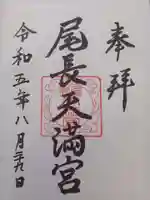 奉拝
尾長天満宮
令和五年八月二十九日